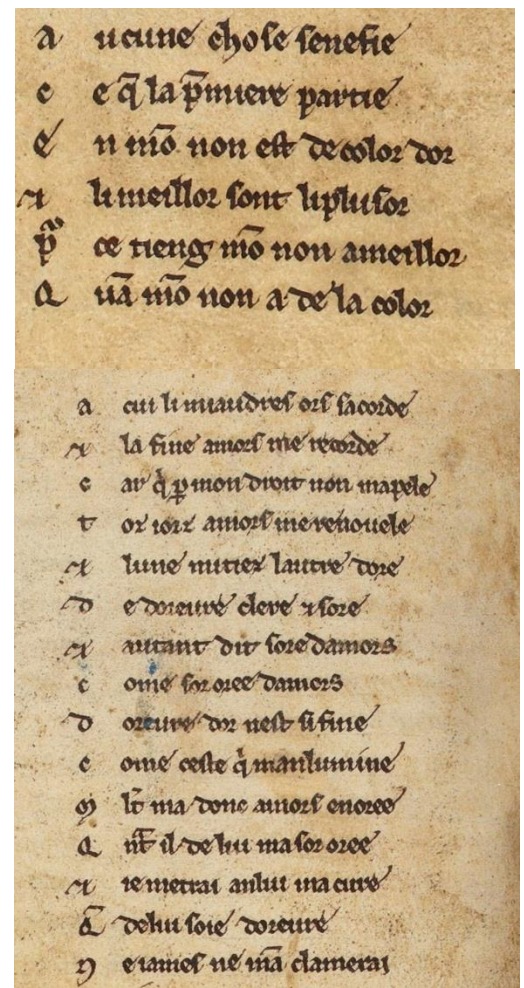 a ucune chose senefie
c e q̄ la p̄miere partie
e n mō non est de color dor
⁊ li meillor sont li plus sor
pͣ ce tieng mō non a meillor
Q uā mō non a de la color
a cui li miaudres ors sacorde
⁊ la fine amors me recorde
c ar q̇ ꝑ mon droit non mapele
t oz iorz amors me renouele
⁊ lune mitiez lautre dore
D e doreure clere ⁊ sore
⁊ autant dit soredamors
c ome sororee damors
D oreure dor nest si fine
c ome ceste q̇ manlumine
M lt̄ ma donc amors enoree
Q nt̄ il de lui ma sororee
⁊ ie metrai an lui ma cure
Q̄ de lui soie doreure
N e iames ne mā clamerai